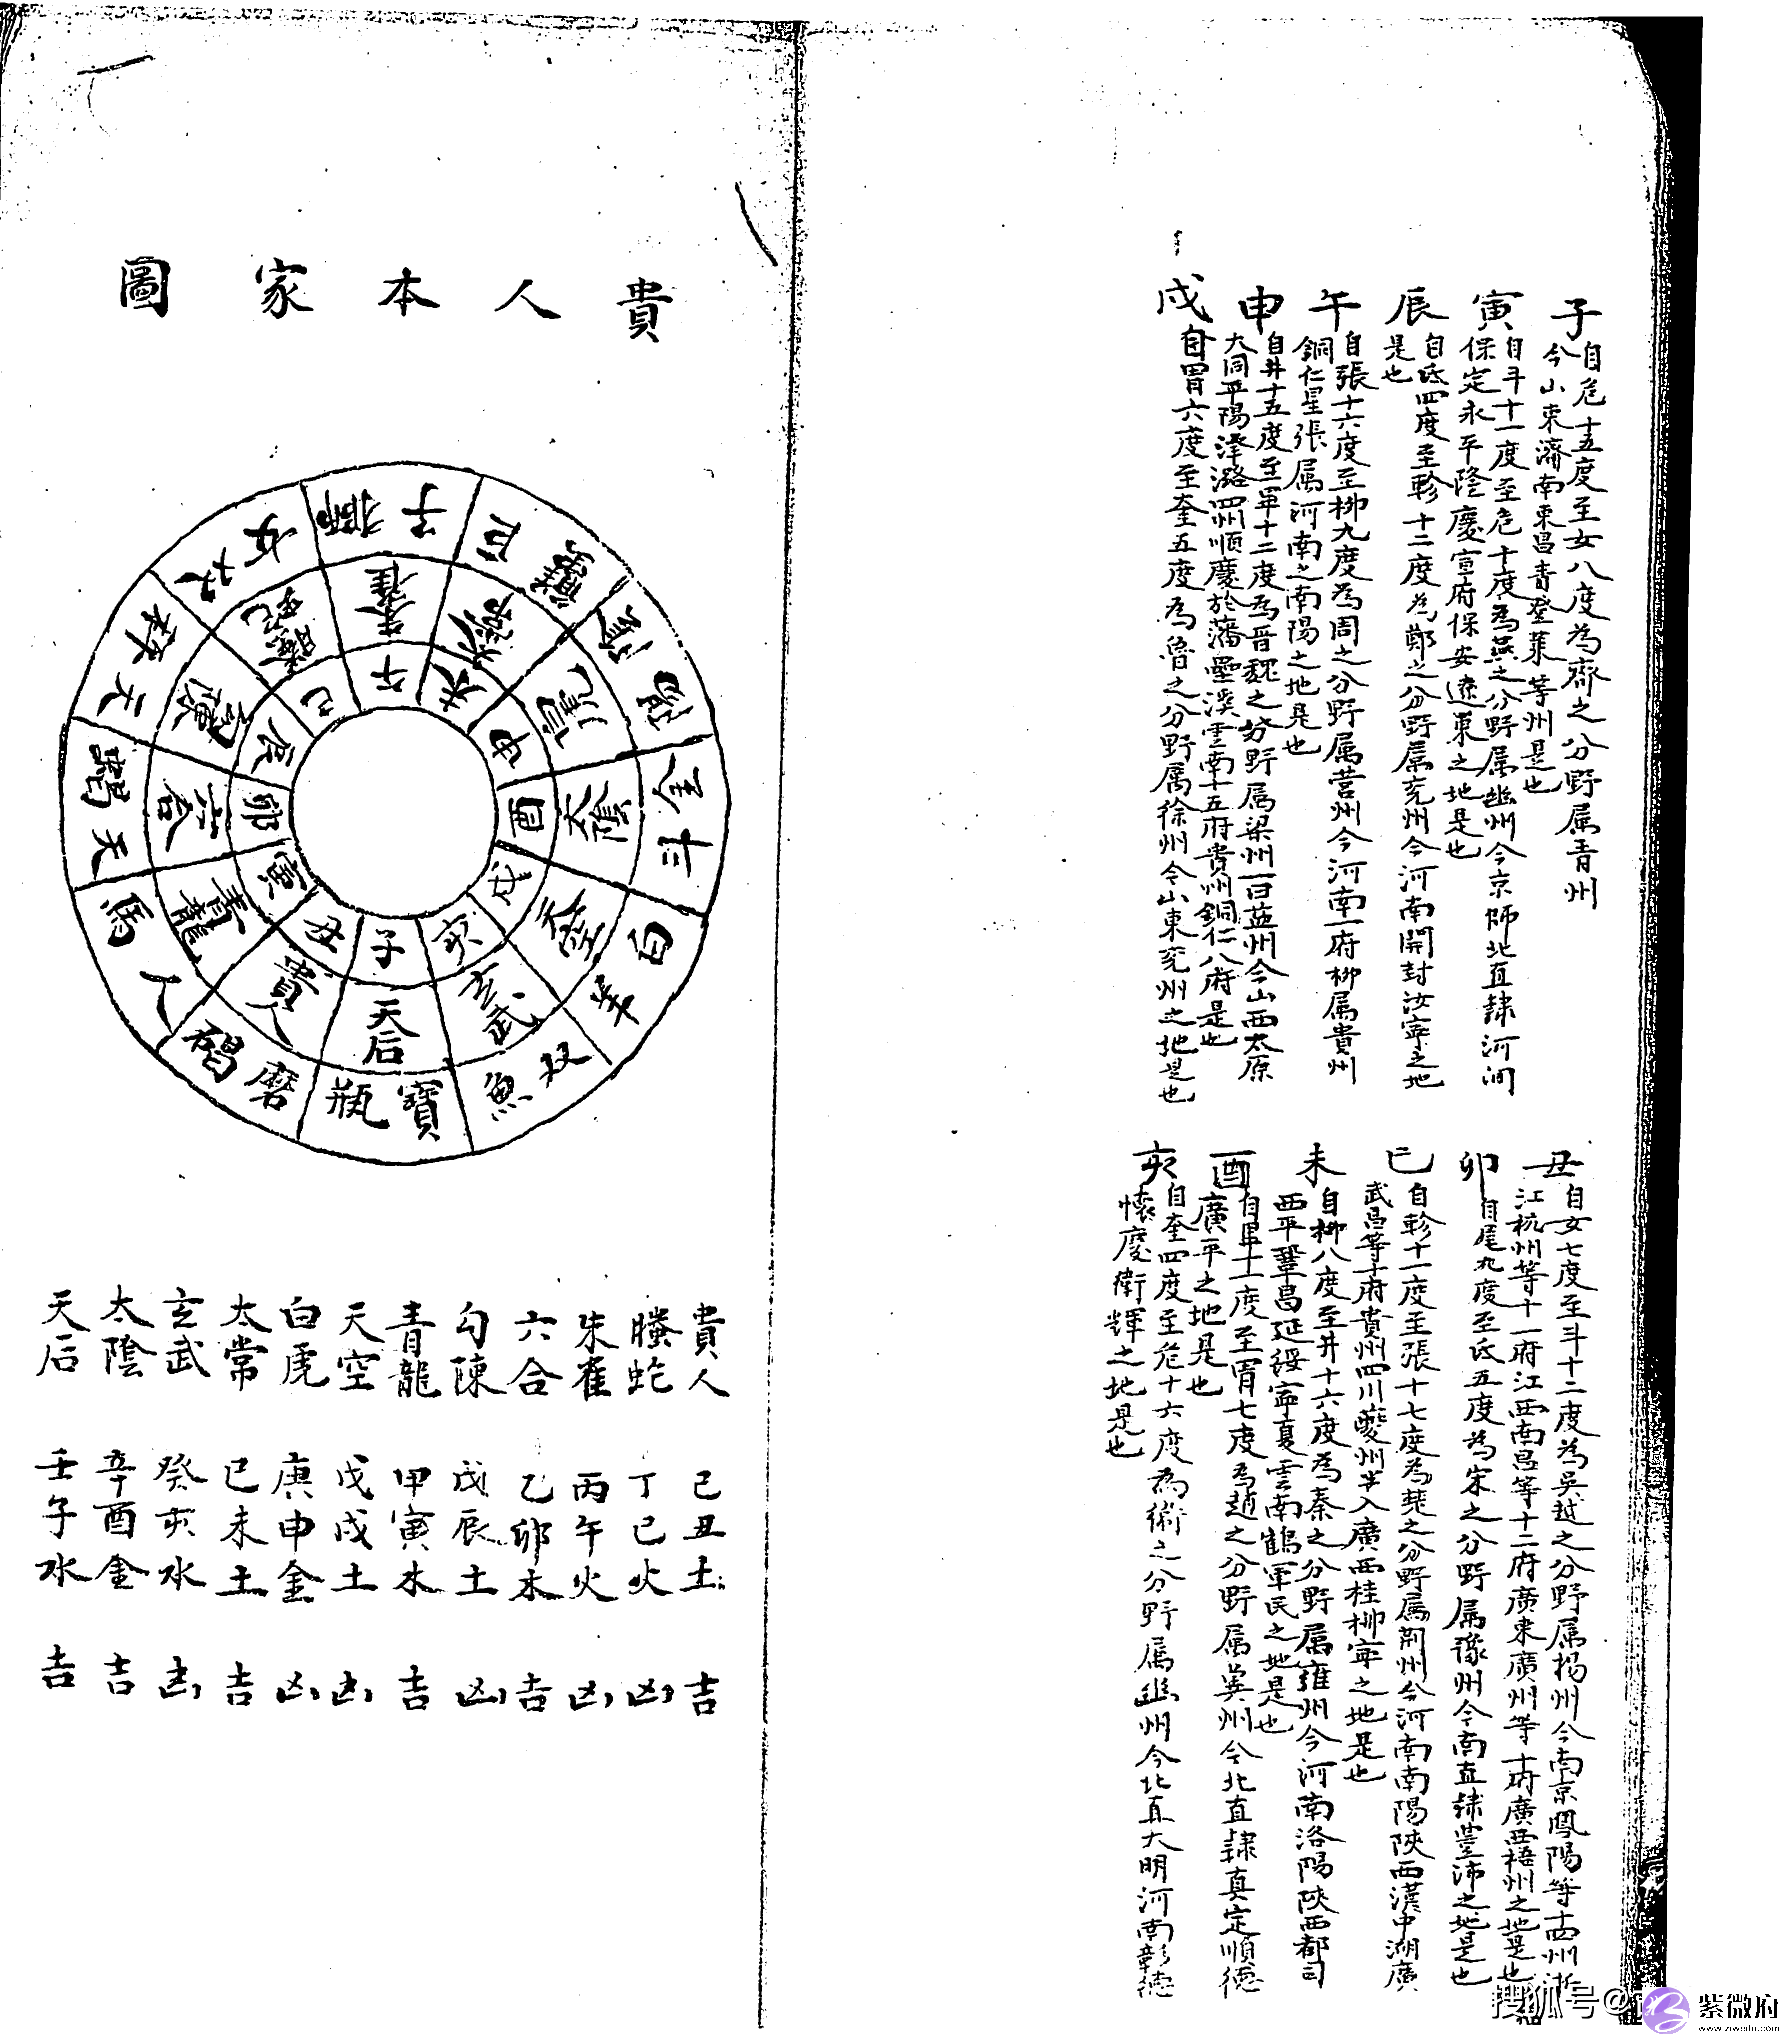 子
自危十五度至女八度為齊之分野属青州
今山東濟南東昌青登萊等州是也
寅
自斗十一度至危十度為燕之分野属幽州今京師北直隸河间
保定永平隆慶宣府保安遼東之地是也
辰
自氐四度至軫十二度為鄭之分野属兖州今河南開封汝寧之地
是也
午
自張十六度至柳九度為周之分野属营州今河南一府柳属貴州
銅仁星張属河南之南陽之地是也
申
自井十五度至畢十二度為晋魏之分野属梁州一曰益州今山西太原
大同平陽泽潞四州順慶於藩壘溪雲南十五府貴州銅仁八府是也
戌
自胃六度至奎五度為魯之分野属徐州今山東兖州之地是也
丑
自女七度至斗十二度為吳越之分野属揚州今南京鳳陽等十四州浙
江杭州等十一府江西南昌等十二府廣東廣州等十府廣西梧州之地是也
卯
自尾九度至氐五度為宋之分野属豫州今南直隸豐沛之地是也
巳
自軫十一度至張十七度為楚之分野属荆州今河南南陽陝西漢中湖廣
武昌等十府貴州四川夔州半入廣西桂柳寧之地是也
未
自柳八度至井十六度為秦之分野属雍州今河南洛陽陝西都司
西平鞏昌延綏寧夏雲南鶴軍民之地是也
酉
自畢十一度至胃七度為趙之分野属冀州今北直隸真定順德
廣平之地是也
亥
自奎四度至危十六度為衛之分野属幽州今北直大明河南彰德
懷慶衛輝之地是也
貴人本家圖
子 天后 寶瓶
丑 貴人 磨碣
寅 青龍 人馬
卯 六合 天蝎
辰 勾陳 天秤
巳 螣蛇 双女
午 朱雀 獅子
未 太常 巨蠏
申 白虎 陰陽
酉 太陰 金牛
戌 天空 白羊
亥 玄武 双魚
貴人 己丑土 吉
螣蛇 丁巳火 凶
朱雀 丙午火 凶
六合 乙卯木 吉
勾陳 戊辰土 凶
青龍 甲寅木 吉
天空 戊戌土 凶
白虎 庚申金 凶
太常 己未土 吉
玄武 癸亥水 凶
太陰 辛酉金 吉
天后 壬子水 吉
搜狐号@
紫微府